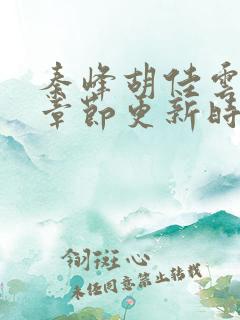 秦峰胡佳雲
章節更新時
翎斑心
未任同意禁止转载